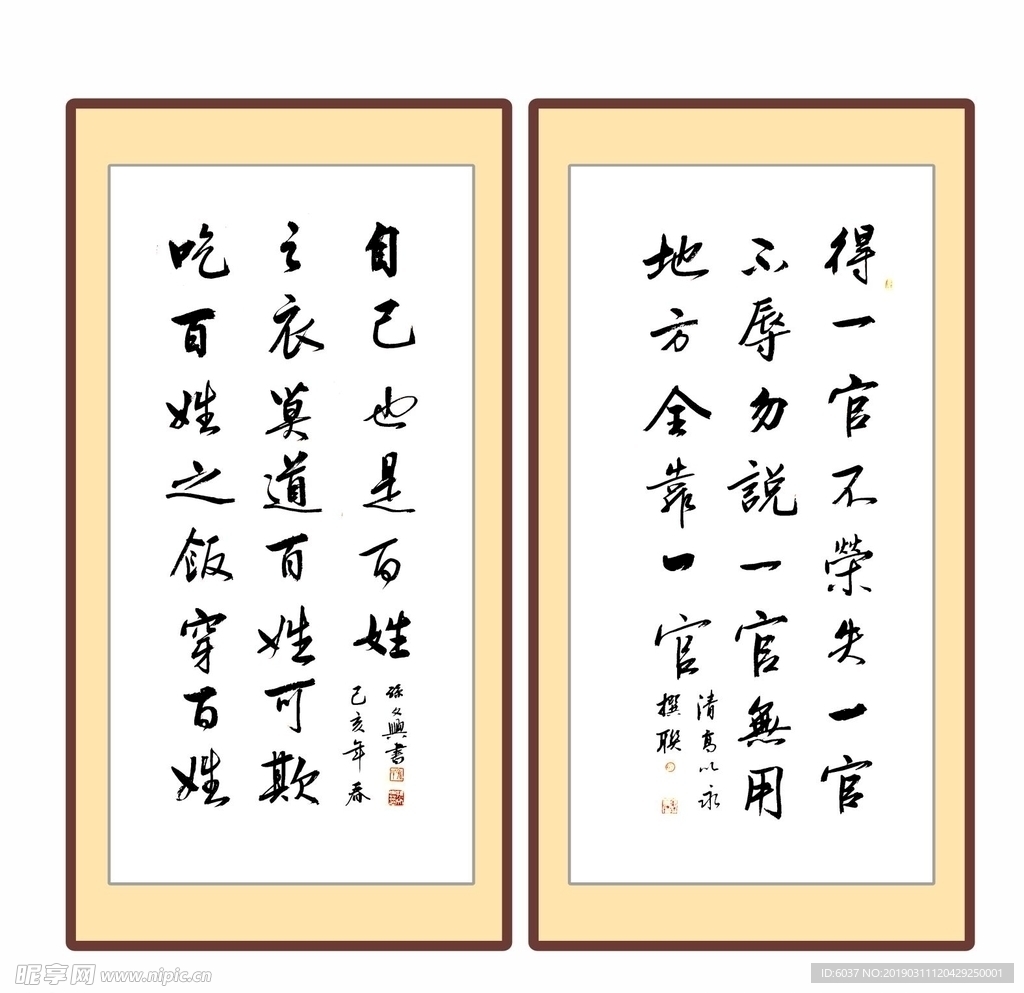 得一官不榮失一官
不辱勿説一官無用
地方全靠一官
清高以永
撰聯
吃百姓之飯穿百姓
之衣莫道百姓可欺
自己也是百姓
己亥年春
孫文興書
昵享网 www.nipic.cn
ID:6037 NO:20190311120429250001